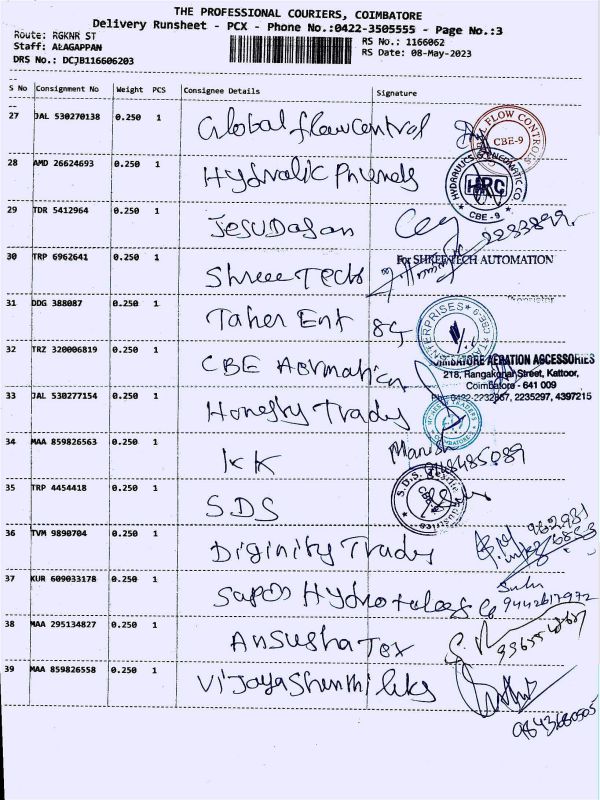 THE PROFESSIONAL COURIERS, COIMBATORE
Delivery Runsheet - PCX - Phone No.:0422-3505555 - Page No.:3
Route: RGKNR ST
Staff: ALAGAPPAN
DRS No.: DCJB116606203
RS No.: 1166062
RS Date: 08-May-2023
S No Consignment No Weight PCS Consignee Details Signature
27 JAL 530270138 0.250 1 Global flow Control
FLOW CONTROLS CBE-9
28 AMD 26624693 0.250 1 Hydvalic
HYDRAULICS & PNEUMATIC CO HRC CBE - 9
29 TDR 5412964 0.250 1 Jesudasan
30 TRP 6962641 0.250 1 Shree Tech
For SHREE TECH AUTOMATION
31 DDG 388087 0.250 1 Taher Ent
ENTERPRISES
32 TRZ 320006819 0.250 1 CBE
COIMBATORE AERATION ACCESSORIES
218, Rangakonar Street, Kattoor,
Coimbatore - 641 009
Ph: 0422-2232867, 2235297, 4397215
33 JAL 530277154 0.250 1 Honesty Trady
34 MAA 859826563 0.250 1 KK Manish
35 TRP 4454418 0.250 1 SDS
S.D.S. Textile Industries
36 TVM 9890704 0.250 1 Diginity Trady
37 KUR 609033178 0.250 1 9442617972
38 MAA 295134827 0.250 1 Ansusha Tex
39 MAA 859826558 0.250 1 Vijaya Shanthi
9843680505